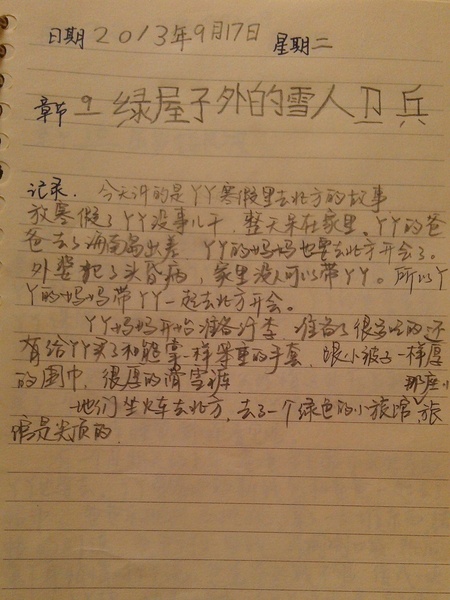 日期 2013年9月17日 星期二
章节 9 绿屋子外的雪人卫兵
记录. 今天讲的是丫丫寒假里去北方的故事
放寒假了丫丫没事儿干.整天呆在家里。丫丫的爸
爸去了海南岛出差 丫丫的妈妈也要去北方开会了。
外婆犯了头昏病,家里没人可以带丫丫。所以丫
丫的妈妈带丫丫一起去北方开会。
丫丫妈妈开始准备行李.准备了很多吃的还
有给丫丫买了和熊掌一样笨重的手套,跟小被子一样厚
的围巾,很厚的滑雪裤
她们坐火车去北方,去了一个绿色的小旅馆,那座小旅
馆是尖顶的.